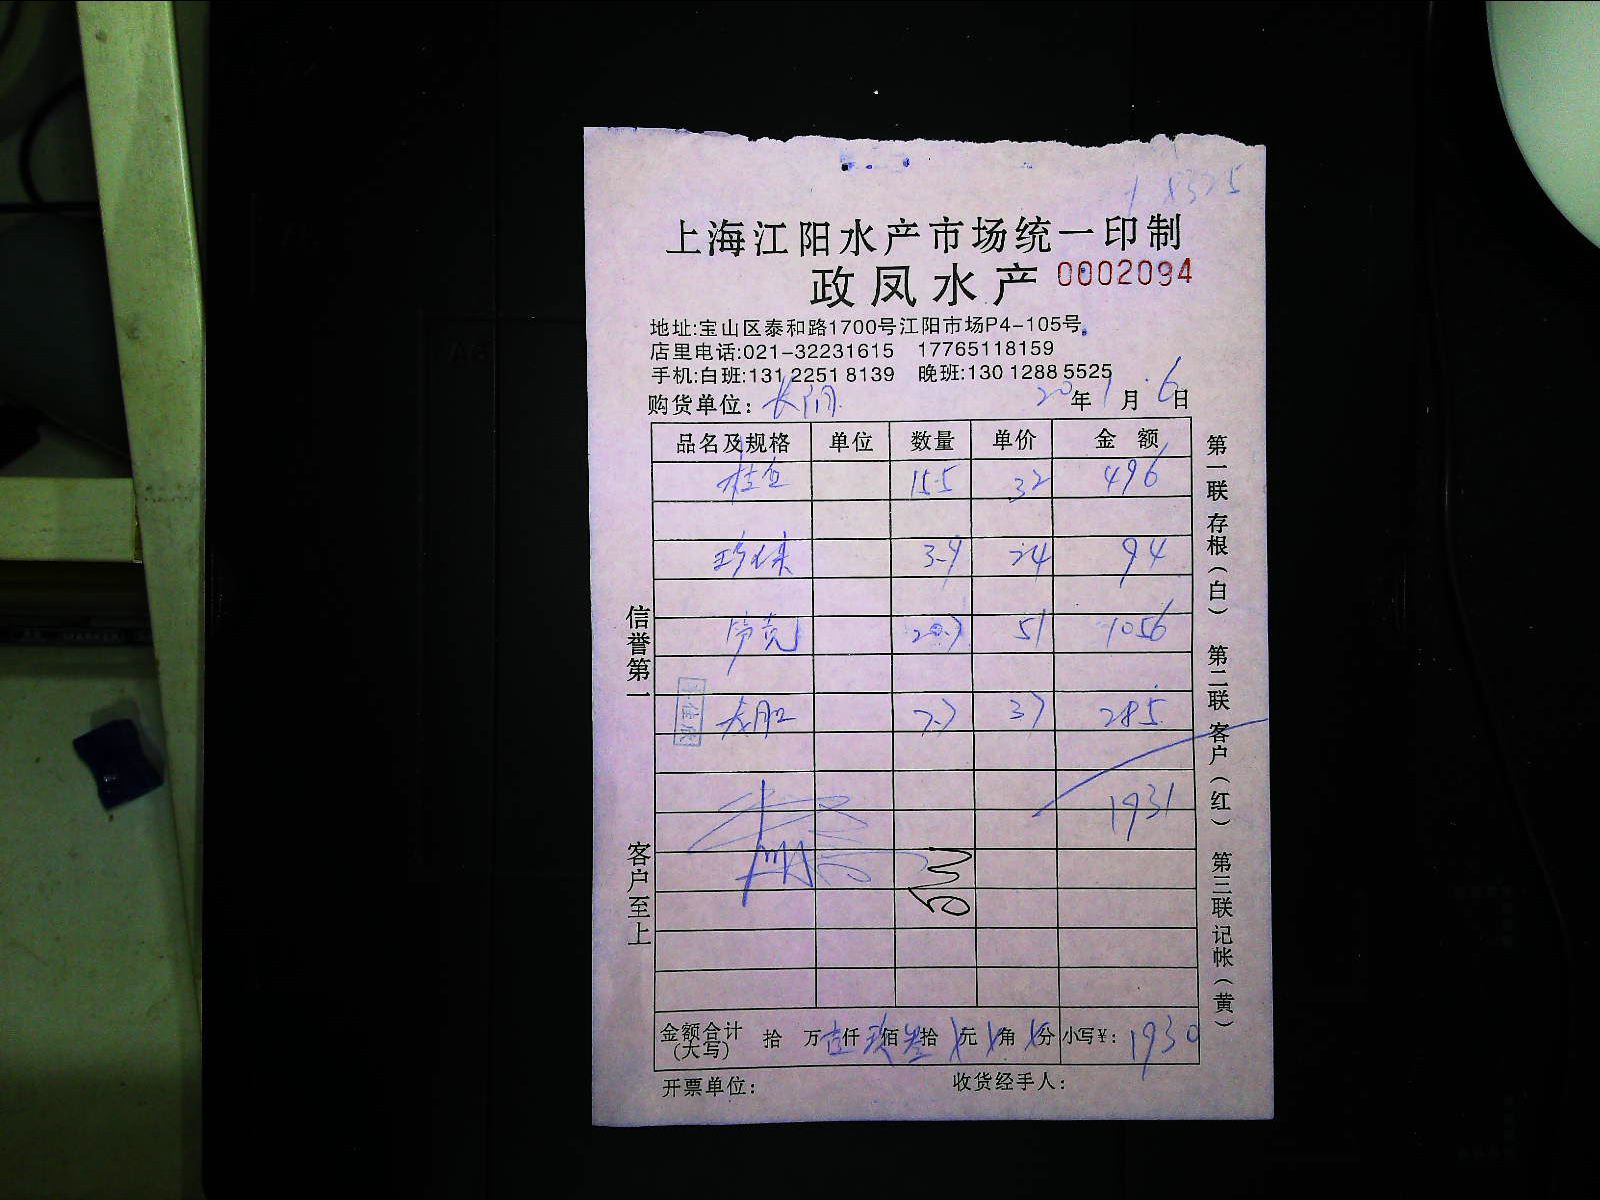 8325
上海江阳水产市场统一印制
政凤水产 0002094
地址:宝山区泰和路1700号江阳市场P4-105号
店里电话:021-32231615 17765118159
手机:白班:131 2251 8139 晚班:130 1288 5525
购货单位: 长阳 20年1月6日
品名及规格 单位 数量 单价 金额
桂鱼 15.5 32 496
珍珠 3.9 24 94
20.7 51 1056
7.7 37 285
1931
金额合计(大写) 拾 万壹仟玖佰叁拾 元 角 分 小写¥: 1930
开票单位: 收货经手人:
信誉第一
客户至上
第一联 存根(白) 第二联 客户(红) 第三联 记帐(黄)